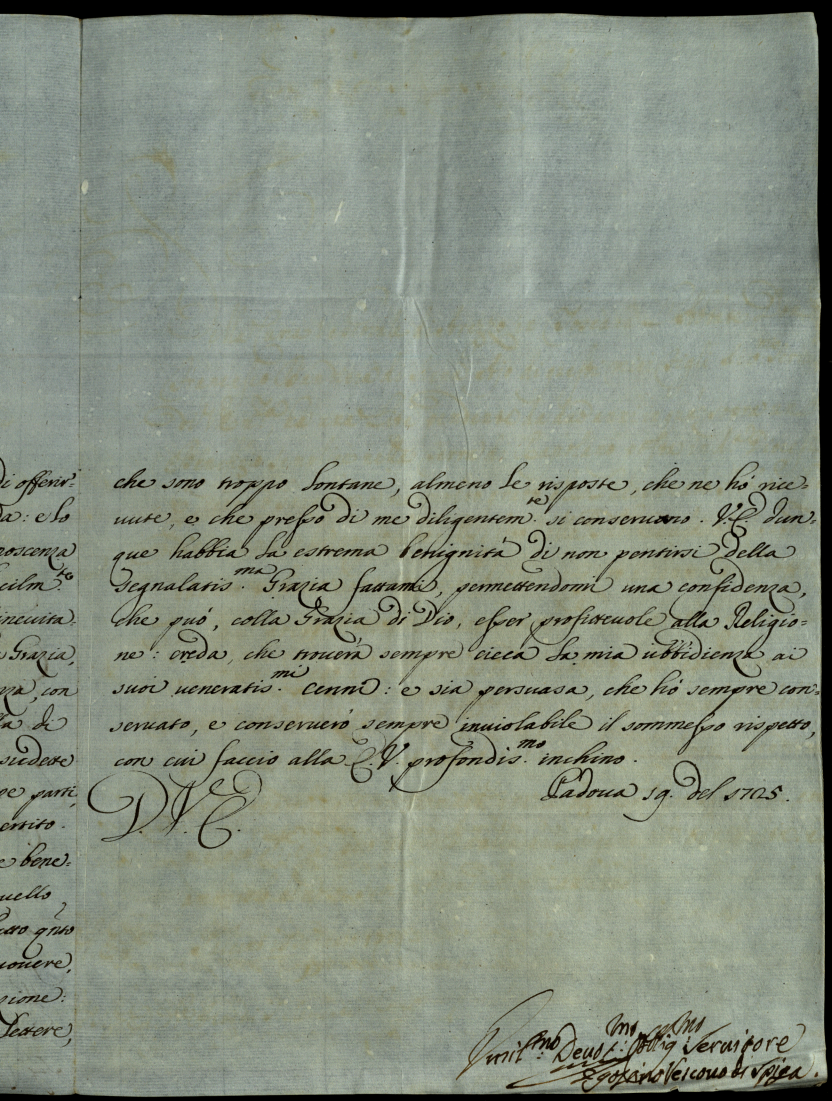 di offerir=
da: e lo
noscenza
cilm.te
inevita=
Grazia,
nza, con
la di
sudette
pe parti,
ertito.
e bene=
uello
tutto q̃nto
uouere,
sione:
lettere,
che sono troppo lontane, almeno le risposte, che ne hò rice=
uute, e che presso di me diligentem.te si conseruano. V.E. dun=
que habbia la estrema benignità di non pentirsi della
segnalatis.ma Grazia fattami, permettendomi una confidenza,
che può, colla Grazia di Dio, esser profitteuole alla Religio=
ne: creda, che trouerà sempre cieca la mia ubbidienza ai
suoi ueneratis.mi cenni: e sia persuasa, che hò sempre con=
seruato, e conseruerò sempre inuiolabile il sommesso rispetto,
con cui faccio alla E.V. profondis.mo inchino.
Padoua 19. del 1725.
D.V.E.
Umil.mo Deuot.mo Obblig.mo Seruitore
Vescouo di Spiga.